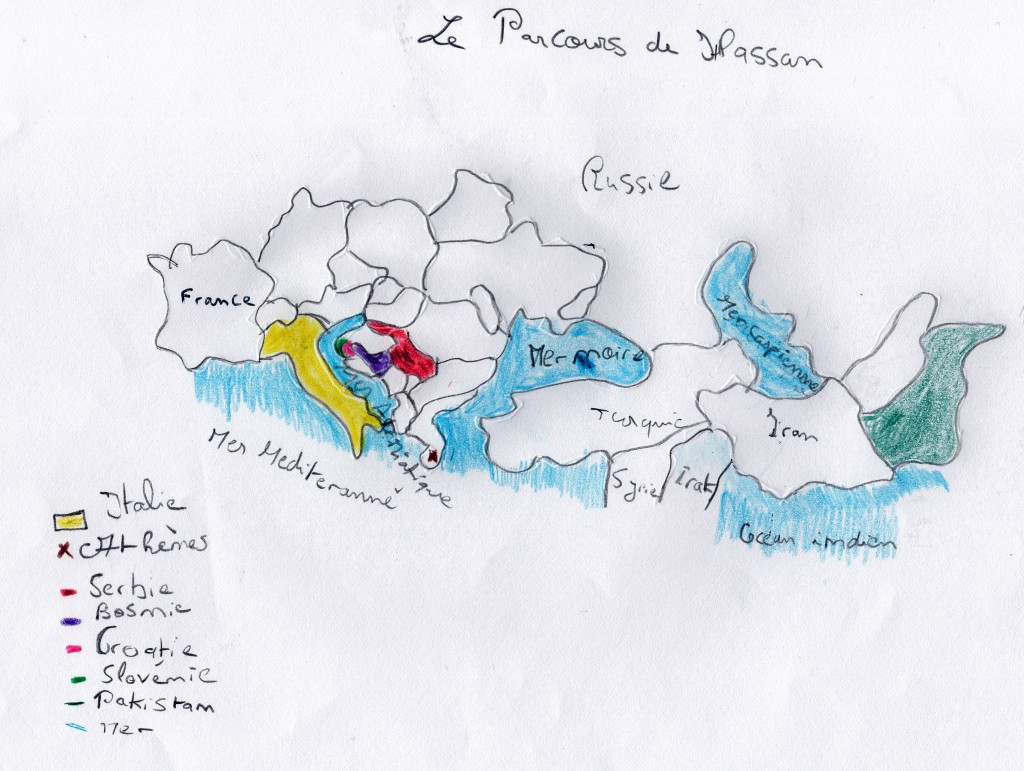 Le Parcours de Hassan
Russie
France
Mer Caspienne
Mer noire
Turquie
Iran
Mer Adriatique
Mer Mediteranné
Syrie
Irak
Océan indien
Italie
Athènes
Serbie
Bosnie
Croatie
Slovénie
Pakistan
Mer